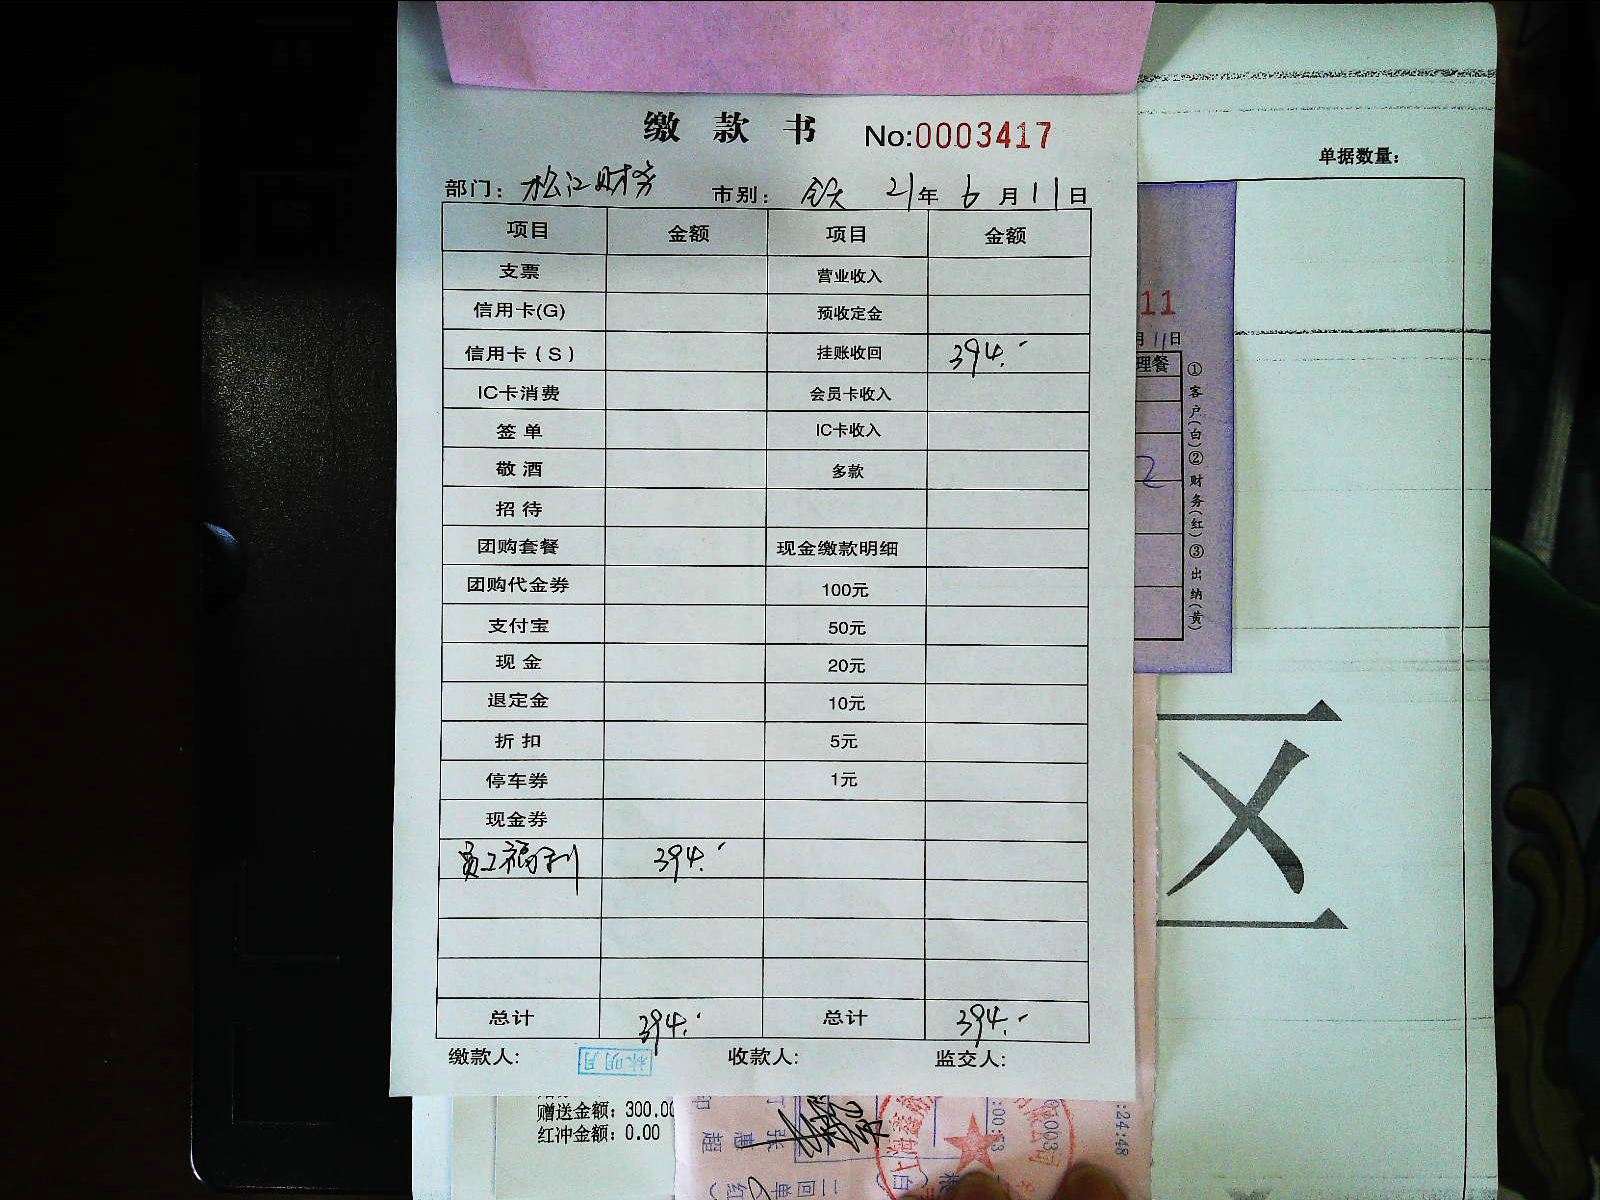 缴款书 No:0003417
单据数量:
部门: 松江财务 市别: 全天 21年6月11日
项目 金额 项目 金额
支票 营业收入
信用卡(G) 预收定金
信用卡(S) 挂账收回 394.-
IC卡消费 会员卡收入
签单 IC卡收入
敬酒 多款
招待
团购套餐 现金缴款明细
团购代金券 100元
支付宝 50元
现金 20元
退定金 10元
折扣 5元
停车券 1元
现金券
员工福利 394.-
总计 394.- 总计 394.-
缴款人: 林明月 收款人: 监交人:
11
月11日
理餐
2
①客户(白)②财务(红)③出纳(黄)
区
赠送金额: 300.00
红冲金额: 0.00
:24:48
:00:53